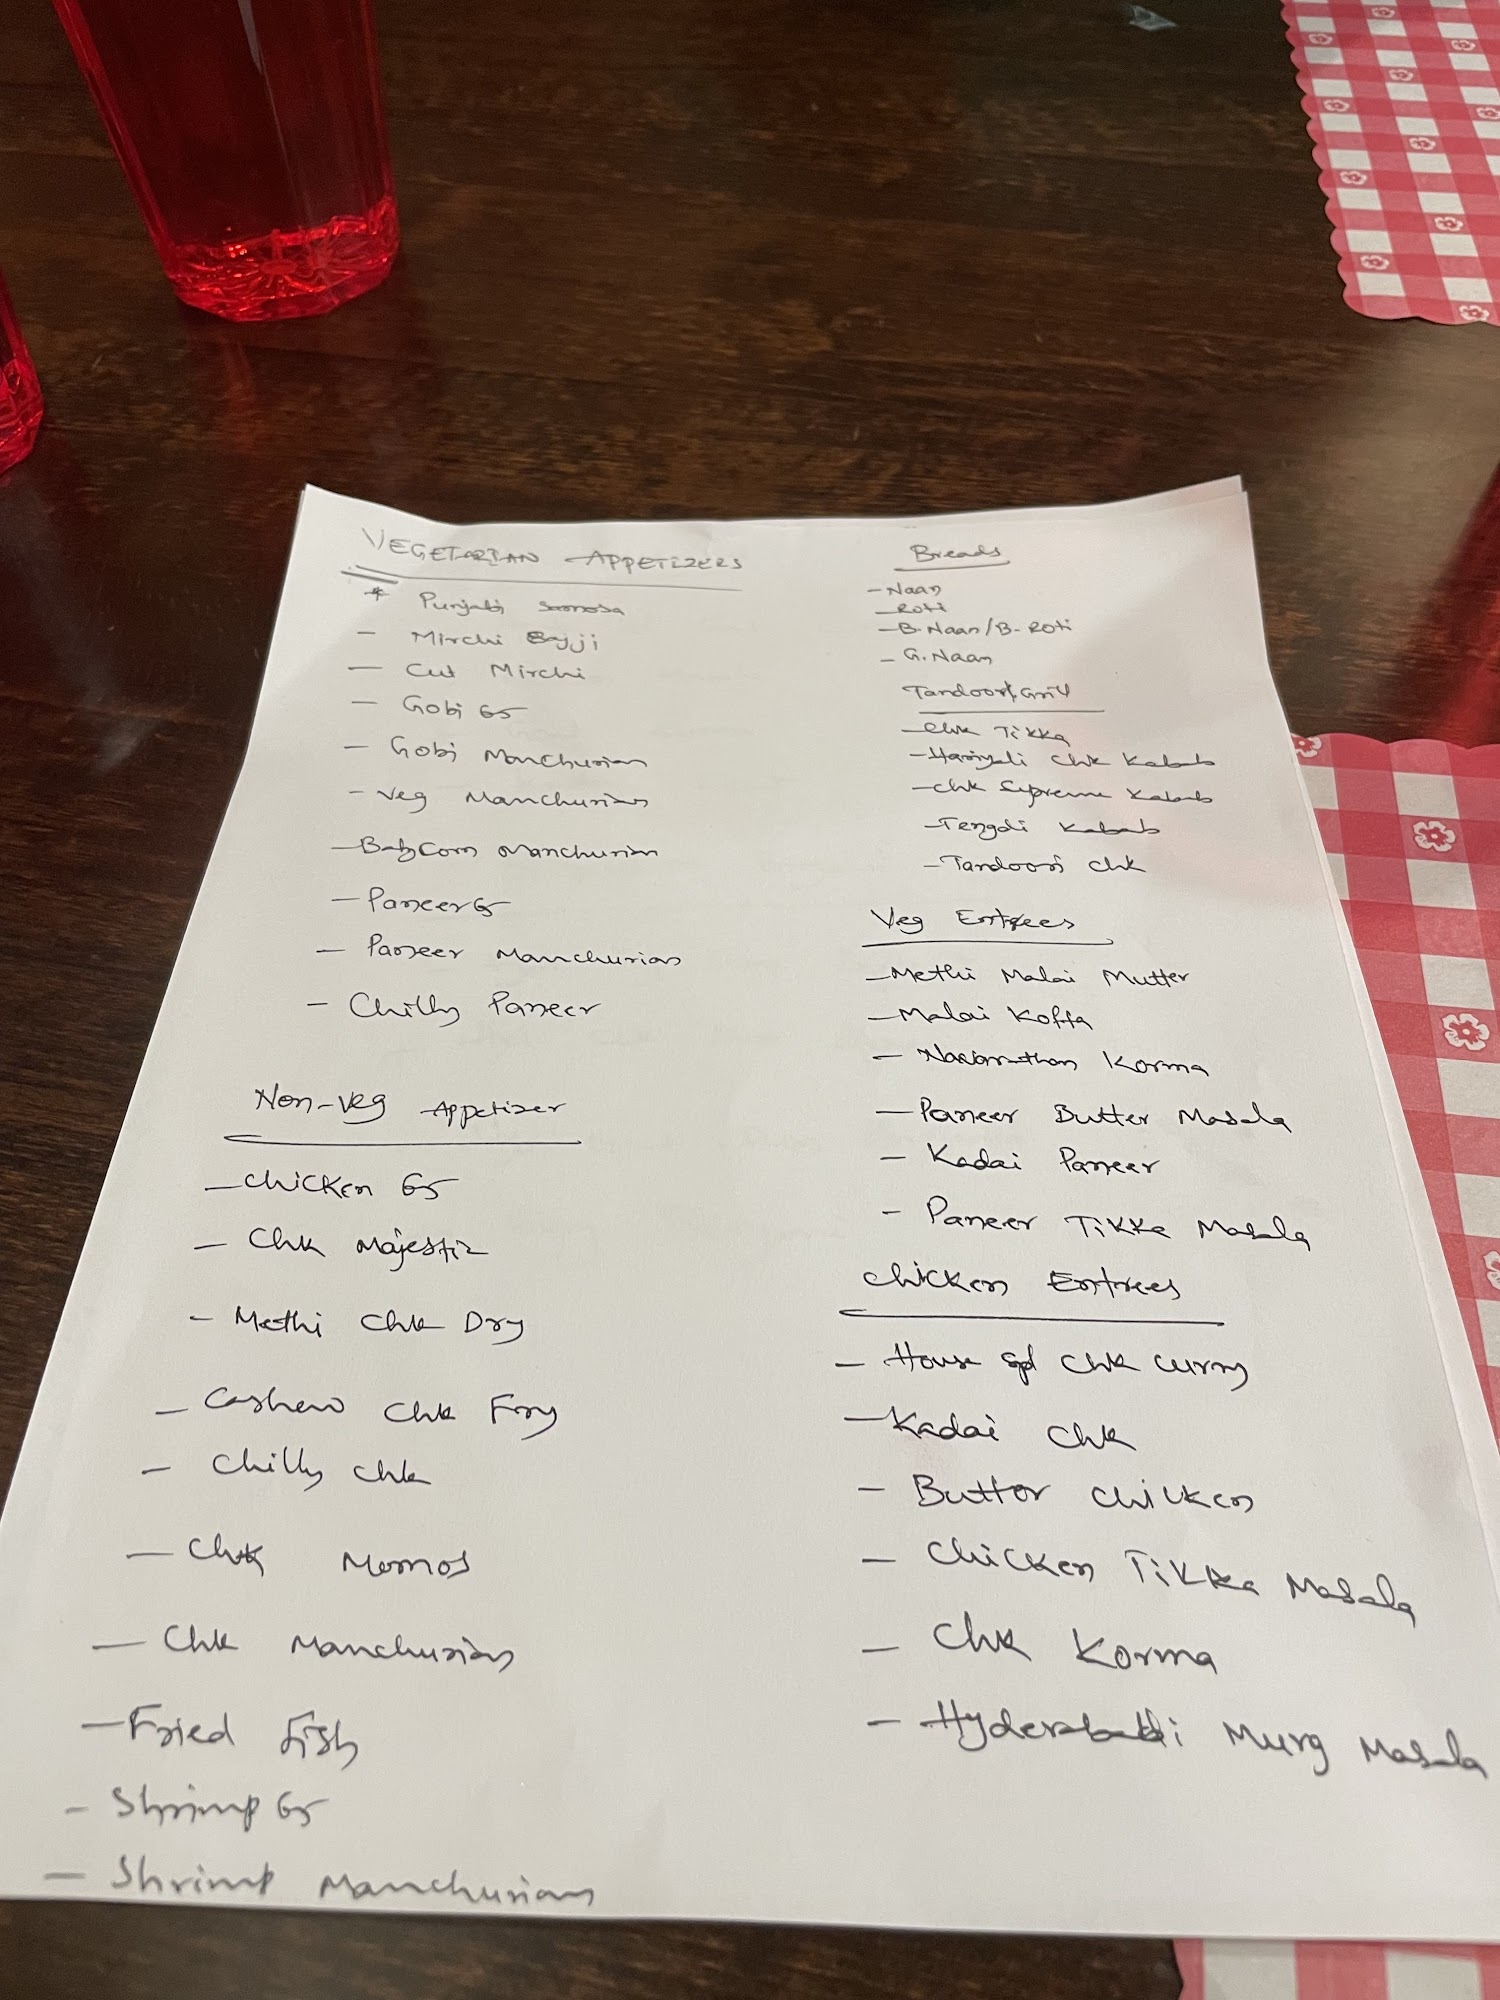 VEGETARIAN APPETIZERS
* Punjabi Samosa
- Mirchi Bajji
- Cut Mirchi
- Gobi 65
- Gobi Manchurian
- Veg Manchurian
- Baby Corn Manchurian
- Paneer 65
- Paneer Manchurian
- Chilly Paneer
Non-veg Appetizer
- Chicken 65
- Chk Majestic
- Methi Chk Dry
- Cashew Chk Fry
- Chilly Chk
- Chk Momos
- Chk Manchurian
- Fried Fish
- Shrimp 65
- Shrimp Manchurian
Breads
- Naan
- Roti
- B. Naan/B. Roti
- G. Naan
Tandoori Grill
- Chk Tikka
- Hariyali Chk Kabab
- Chk Supreme Kabab
- Tengdi Kabab
- Tandoori Chk
Veg Entrees
- Methi Malai Mutter
- Malai Kofta
- Navarathan Korma
- Paneer Butter Masala
- Kadai Paneer
- Paneer Tikka Masala
Chicken Entrees
- House Spl Chk Curry
- Kadai Chk
- Butter Chicken
- Chicken Tikka Masala
- Chk Korma
- Hyderabadi Murg Masala